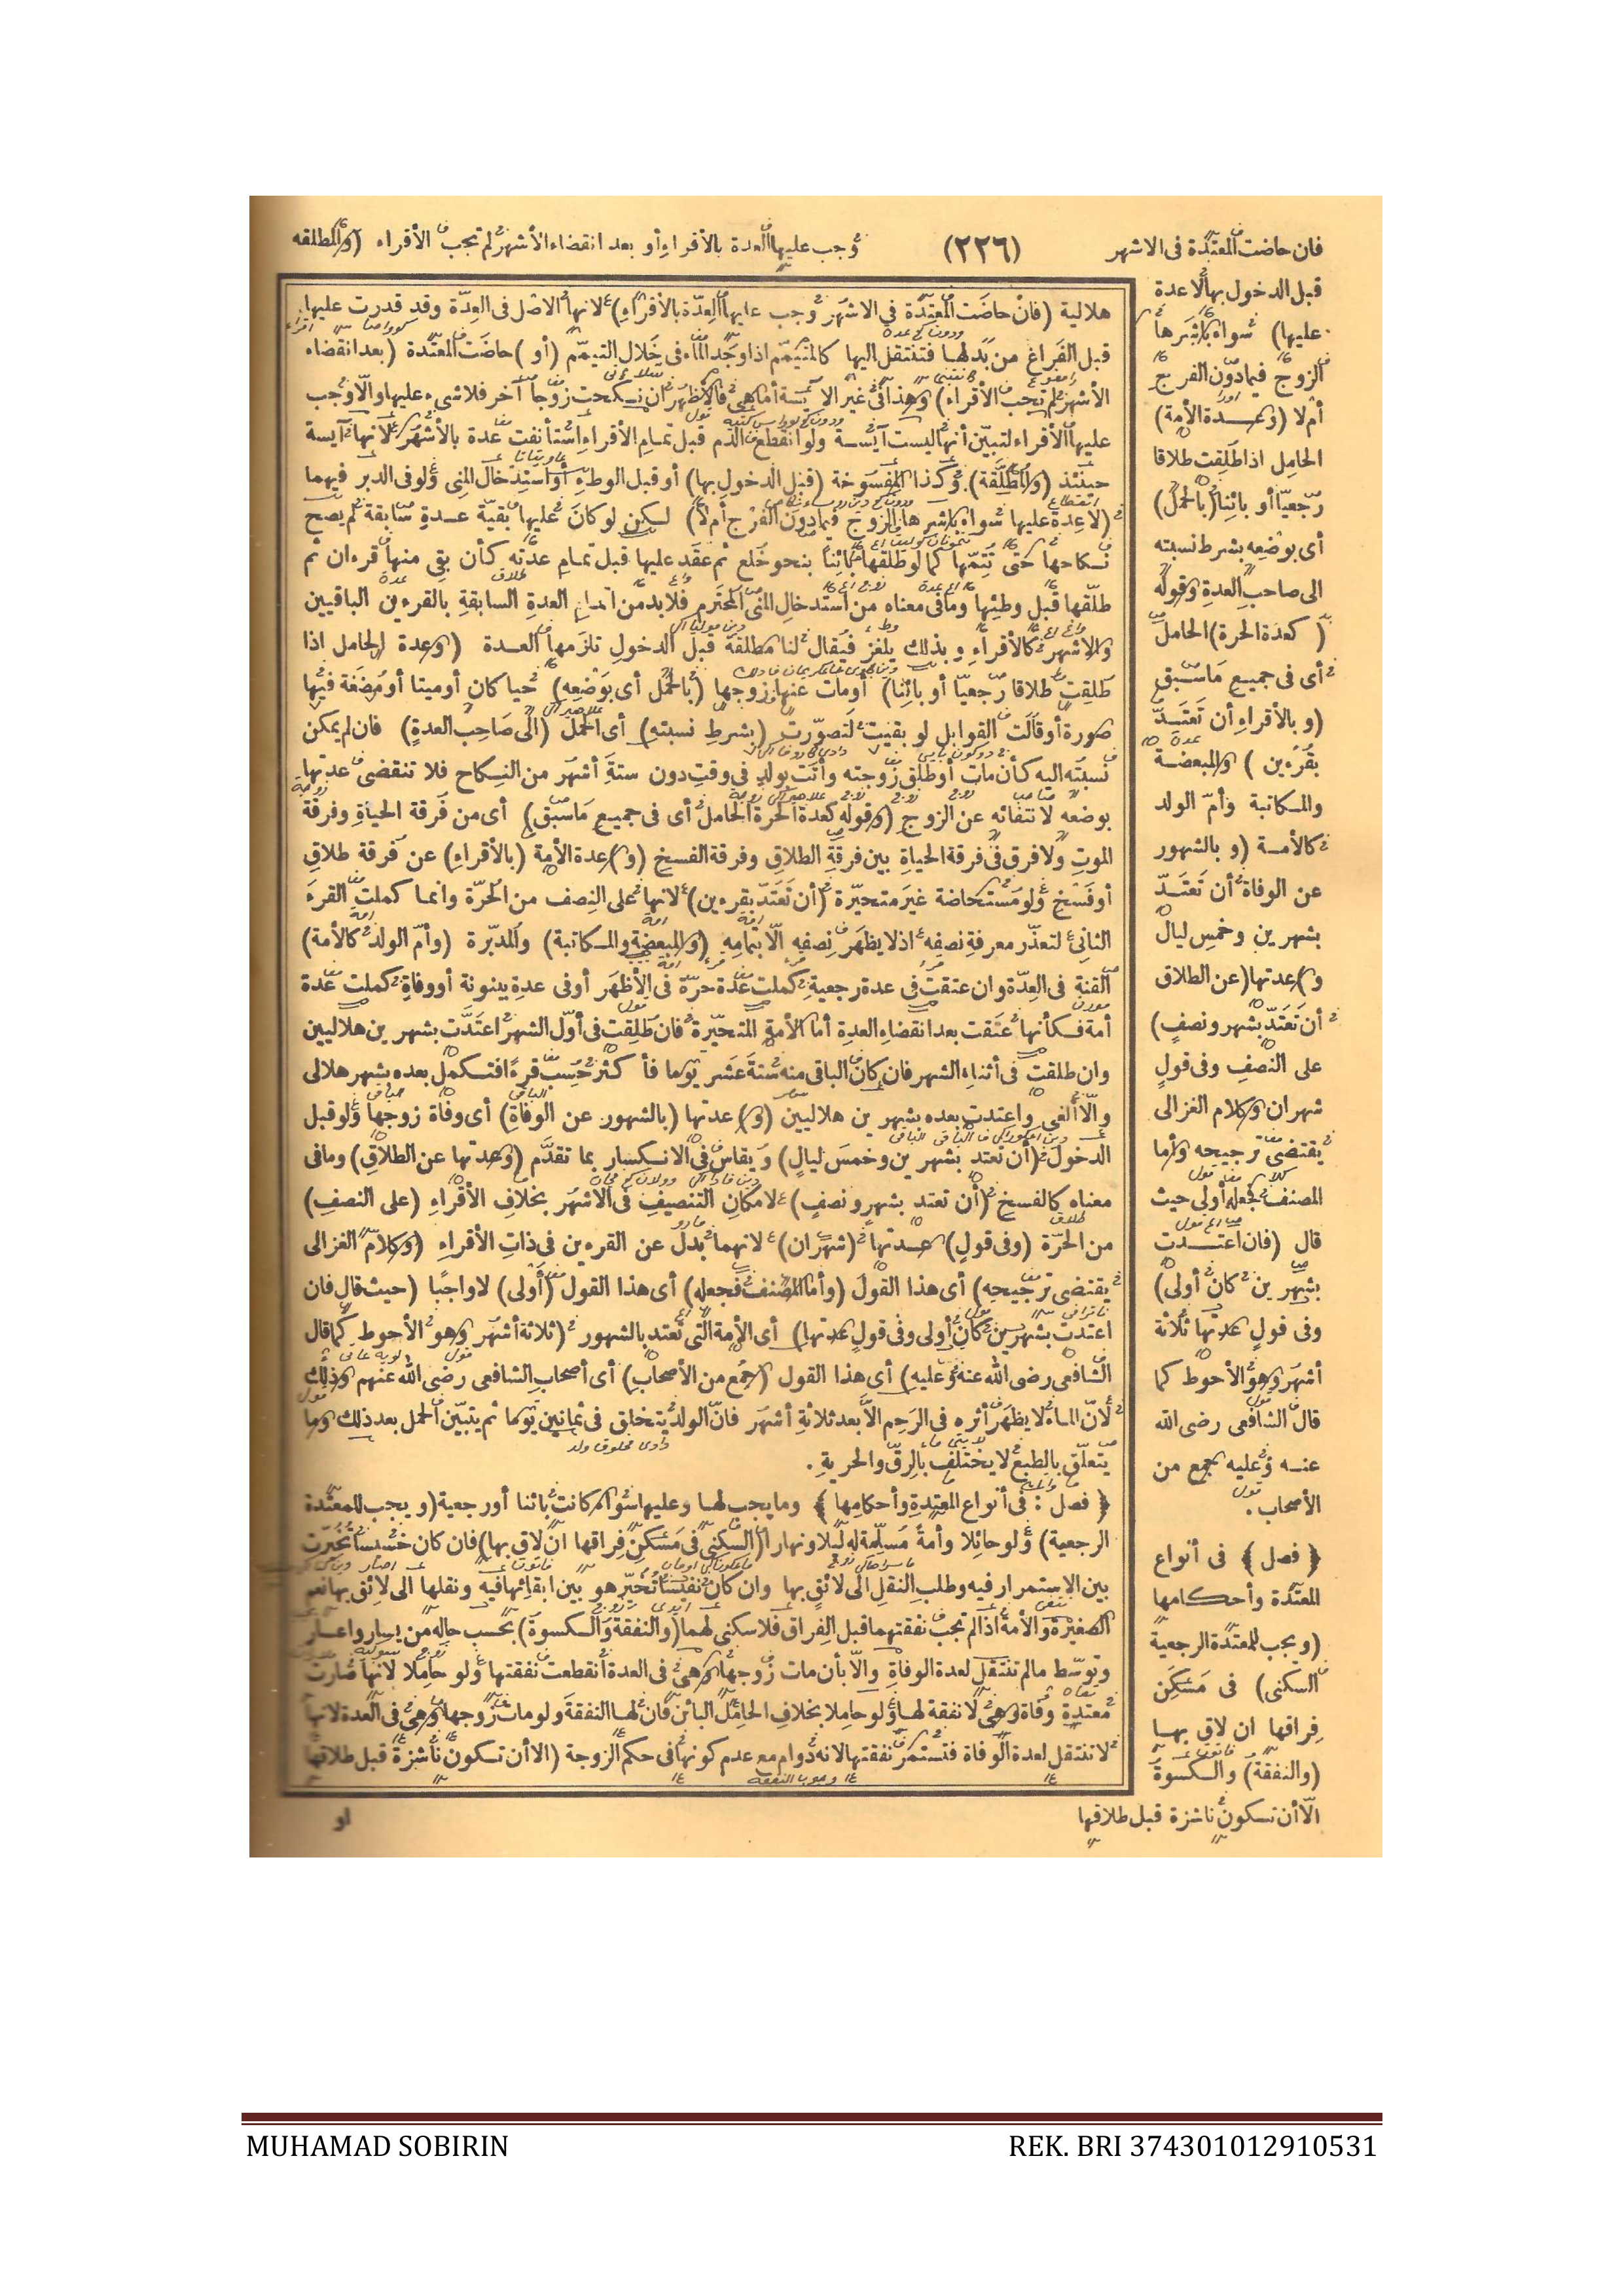 فان حاضت المعتدة فى الاشهر (٢٢٦) وجب عليها العدة بالأقراء أو بعد انقضاء الأشهر لم تجب الأقراء (والمطلقه
قبل الدخول بها لا عدة
عليها) سواء باشرها
الزوج فيما دون الفرج
أم لا (وعدة الأمة)
الحامل اذا طلقت طلاقا
رجعيا أو بائنا (بالحمل)
أى بوضعه بشرط نسبته
الى صاحب العدة وقوله
(كعدة الحرة) الحامل
أى فى جميع ماسبق
(و بالأقراء أن تعتد
بقرءين) والمبعضة
والمكاتبة وأم الولد
كالأمة (و بالشهور
عن الوفاة أن تعتد
بشهرين وخمس ليال
و) عدتها (عن الطلاق
أن تعتد بشهر ونصف)
على النصف وفى قول
شهران وكلام الغزالى
يقتضى ترجيحه وأما
المصنف فجعله أولى حيث
قال (فان اعتدت
بشهرين كان أولى)
وفى قول عدتها ثلاثة
أشهر وهو الأحوط كما
قال الشافعى رضى الله
عنه وعليه جمع من
الأصحاب.
﴿ فصل ﴾ فى أنواع
المعتدة وأحكامها
(و يجب للمعتدة الرجعية
السكنى) فى مسكن
فراقها ان لاق بها
(والنفقة) والكسوة
الا أن تكون ناشزة قبل طلاقها
هلالية (فان حاضت المعتدة فى الاشهر وجب عليها العدة بالأقراء) لانها الاصل فى العدة وقد قدرت عليها
قبل الفراغ من بدلها فتنتقل اليها كالمتيمم اذا وجد الماء فى خلال التيمم (أو) حاضت المعتدة (بعد انقضاء
الأشهر لم تجب الأقراء) وهذا فى غير الآيسة أما هى فالأظهر ان نكحت زوجا آخر فلاشىء عليها والا وجب
عليها الأقراء لتبين أنها ليست آيسة ولو انقطع الدم قبل تمام الأقراء استأنفت عدة بالأشهر لانها آيسة
حينئذ (والمطلقة) وكذا المفسوخة (قبل الدخول بها) أو قبل الوطء أو استدخال المنى ولو فى الدبر فيهما
(لا عدة عليها سواء باشرها الزوج فيما دون الفرج أم لا) لكن لو كان عليها بقية عدة سابقة لم يصح
نكاحها حتى تتمها كما لو طلقها بائنا بنحو خلع ثم عقد عليها قبل تمام عدته كأن بقى منها قرءان ثم
طلقها قبل وطئها وما فى معناه من استدخال المنى المحترم فلابد من اتمام العدة السابقة بالقرءين الباقيين
والاشهر كالأقراء و بذلك يلغز فيقال لنا مطلقة قبل الدخول تلزمها العدة (وعدة الحامل اذا
طلقت طلاقا رجعيا أو بائنا) أو مات عنها زوجها (بالحمل أى بوضعه) حيا كان أو ميتا أو مضغة فيها
صورة أو قالت القوابل لو بقيت لتصورت (بشرط نسبته) أى الحمل (الى صاحب العدة) فان لم يمكن
نسبته اليه كأن مات أو طلق زوجته وأتت بولد فى وقت دون ستة أشهر من النكاح فلا تنقضى عدتها
بوضعه لانتفائه عن الزوج (وقوله كعدة الحرة الحامل أى فى جميع ماسبق) أى من فرقة الحياة وفرقة
الموت ولا فرق فى فرقة الحياة بين فرقة الطلاق وفرقة الفسخ (و) عدة الأمة (بالأقراء) عن فرقة طلاق
أو فسخ ولو مستحاضة غير متحيرة (أن تعتد بقرءين) لانها على النصف من الحرة وانما كملت القرء
الثانى لتعذر معرفة نصفه اذ لا يظهر نصفه الا بتمامه (والمبعضة والمكاتبة) والمدبرة (وأم الولد كالأمة)
القنة فى العدة وان عتقت فى عدة رجعية كملت عدة حرة فى الأظهر أو فى عدة بينونة أو وفاة كملت عدة
أمة فكأنها عتقت بعد انقضاء العدة أما الأمة المتحيرة فان طلقت فى أول الشهر اعتدت بشهرين هلاليين
وان طلقت فى أثناء الشهر فان كان الباقى منه ستة عشر يوما فأكثر حسب قرءا فتكمل بعده بشهر هلالى
والا ألغى واعتدت بعده بشهرين هلاليين (و) عدتها (بالشهور عن الوفاة) أى وفاة زوجها ولو قبل
الدخول (أن تعتد بشهرين وخمس ليال) و يقاس فى الانكسار بما تقدم (وعدتها عن الطلاق) وما فى
معناه كالفسخ (أن تعتد بشهر ونصف) لامكان التنصيف فى الاشهر بخلاف الأقراء (على النصف)
من الحرة (وفى قول) عدتها (شهران) لانهما بدل عن القرءين فى ذات الأقراء (وكلام الغزالى
يقتضى ترجيحه) أى هذا القول (وأما المصنف فجعله) أى هذا القول (أولى) لا واجبا (حيث قال فان
اعتدت بشهرين كان أولى وفى قول عدتها) أى الأمة التى تعتد بالشهور (ثلاثة أشهر وهو الأحوط كما قال
الشافعى رضى الله عنه وعليه) أى هذا القول (جمع من الأصحاب) أى أصحاب الشافعى رضى الله عنهم وذلك
لأن الماء لا يظهر أثره فى الرحم الا بعد ثلاثة أشهر فان الولد يتخلق فى ثمانين يوما ثم يتبين الحمل بعد ذلك وما
يتعلق بالطبع لا يختلف بالرق والحرية.
﴿ فصل: فى أنواع المعتدة وأحكامها ﴾ وما يجب لها وعليها سواء كانت بائنا أو رجعية (و يجب للمعتدة
الرجعية) ولو حائلا وأمة مسلمة له ليلا ونهارا (السكنى فى مسكن فراقها ان لاق بها) فان كان خسيسا تخيرت
بين الاستمرار فيه وطلب النقل الى لائق بها وان كان نفيسا تخير هو بين ابقائها فيه ونقلها الى لائق بها نعم
الصغيرة والأمة اذا لم تجب نفقتهما قبل الفراق فلاسكنى لهما (والنفقة والكسوة) بحسب حاله من يسار واعسار
وتوسط مالم تنتقل لعدة الوفاة والا بأن مات زوجها وهى فى العدة انقطعت نفقتها ولو حاملا لانها صارت
معتدة وفاة وهى لا نفقة لها ولو حاملا بخلاف الحامل البائن فان لها النفقة ولو مات زوجها وهى فى العدة لانها
لا تنتقل لعدة الوفاة فتستمر نفقتها لانه دوام مع عدم كونها فى حكم الزوجة (الا أن تكون ناشزة قبل طلاقها
او
MUHAMAD SOBIRIN REK. BRI 374301012910531